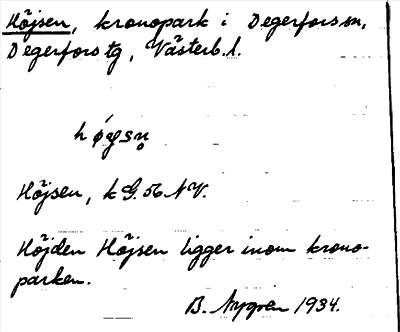 Höjsen, kronopark i Degerfors sn,
Degerfors tg, Västerb. l.
Höjsen, k G. 56 NV.
Höjden Höjsen ligger inom krono-
parken.
B. Nygren 1934.